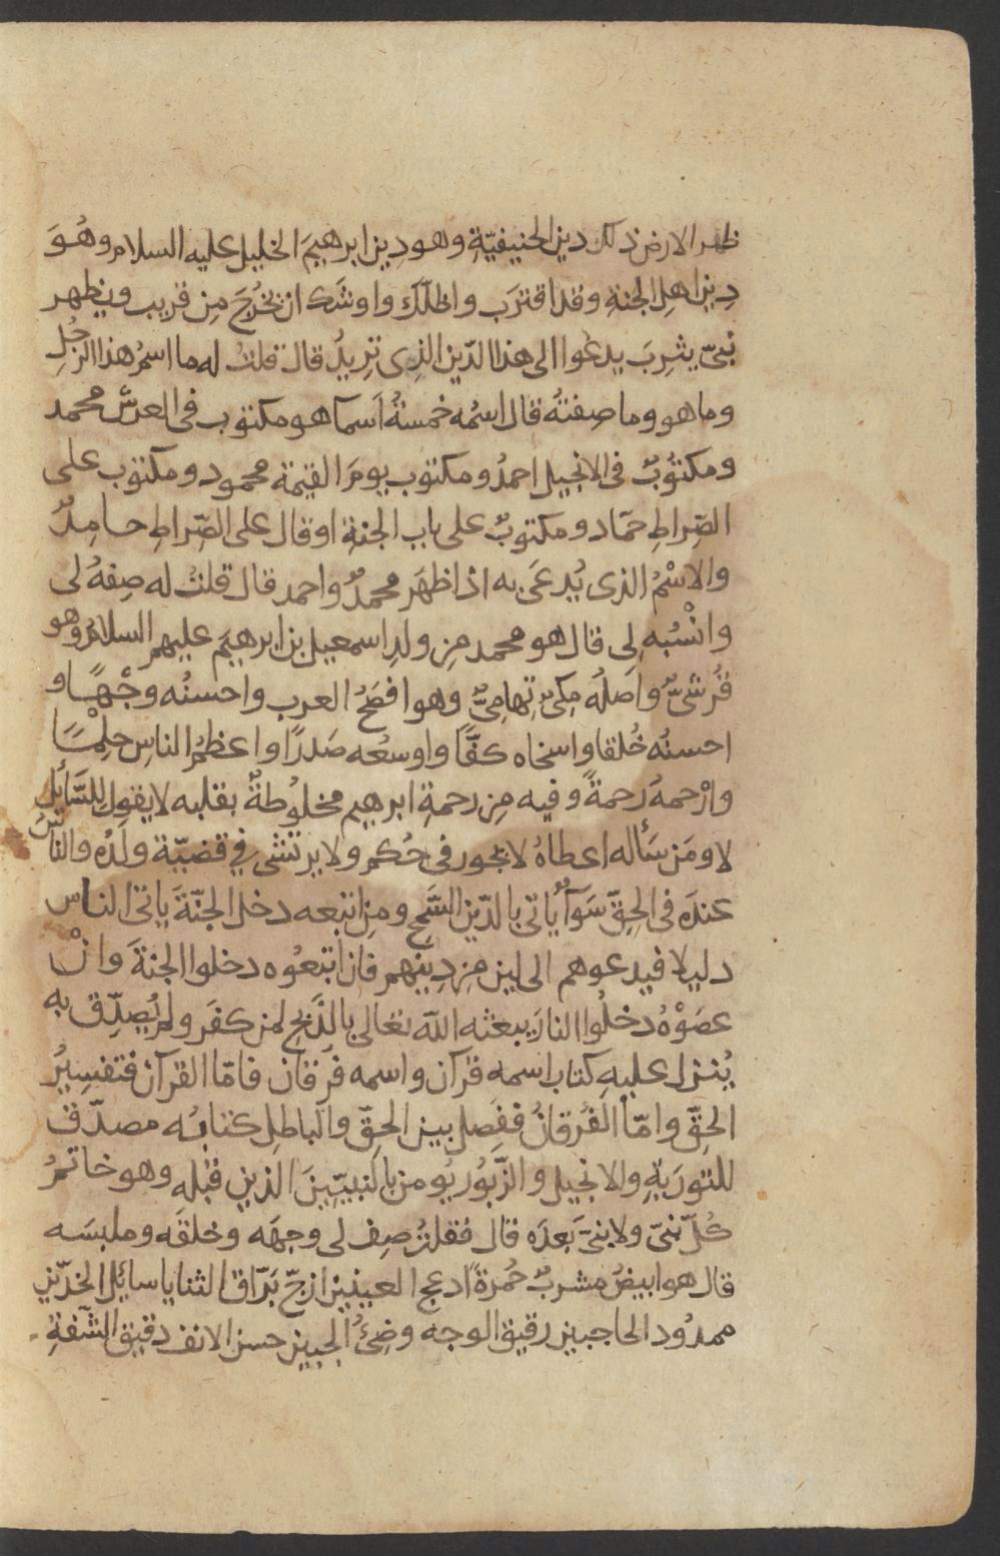 ظهر الارض ذلك دين الحنيفيّةِ وهو دين ابرهيمَ الخليل عليه السلام وهُوَ
دين اهل الجنةِ وقد اقترَب واظلّك واوشَك ان يَخرُجَ مِن قريب ويظهر
نبىّ يثرِبَ يدعُوا الى هذا الدّين الذِى تريدُ قال قلتُ له ما اسمُ هذا الرجُلِ
وما هو وما صِفتهُ قال اسمُه خمسةُ اَسمآ هو مكتوب فى العرش محمد
ومكتُوبٌ فى الانجيل احمدُ ومكتوب يومَ القيٰمة محمود ومكتوب على
الصّراطِ حمّاد ومكتوبٌ على باب الجنةِ او قال على الصّراطِ حامِدٌ
والاسْمُ الذى يُدعَى به اذا ظهَر محمدٌ واحمد قال قلتُ له صِفهُ لى
وانْسُبه لِى قال هو محمد من ولدِ اسمعيل بن ابرهيَم عليهم السلامُ وهو
قُرشىٌّ واَصلُه مِكىّ تِهامِىٌّ وهو افصَحُ العرب واحسنُه وجْهًا و
احسنُه خُلقا واسخاه كفًّا واوسعُه صَدرًا واعظمُ الناسِ حِلْمًا
وارْحمهُ رَحمةً وفيه مِن رحمةِ ابرهيم مخلُوطةٌ بقلبه لا يقول للسَّائِل
لا ومَن سَأله اعطاهُ لا يجور فى حُكم ولا يرتشى في قضيّة ولَدُه والناسُ
عندَه فى الحقّ سَوآءٌ ياتى بالدّين السَّمحِ ومن اتبعه دخل الجنّةَ ياتى الناس
دليلا فيدعوهم الى لين من دِينهم فان اتبعُوه دخلوا الجنةَ وانْ
عصَوْهُ دخلُوا النارَ يبعثه اللّه تعالى بالذَّبحِ لمن كفَر ولم يُصدِّق به
يُنزل عليهِ كتاب اسمه قرآن واسمه فُرقان فامّا القرآن فتفسِيرُ
الحقّ وامّا الفُرقانُ ففِصل بين الحقّ والباطِل كتابُه مصدّق
للتورَيةِ والانجيل والزّبُور يُومن بالنبيّينَ الذين قبله وهو خاتمُ
كُلّ نبىّ ولا نبىَّ بَعدَه قال فقلتُ صِف لى وجهَه وخلقَه وملبسَه
قال هو ابيضُ مشربٌ حُمرةً ادعج العينين ازجّ برّاق الثنايا سائل الخدّين
ممدُود الحاجبين رقيق الوجه وضِئُ الجبين حسن الانف دقيق الشّفةِ